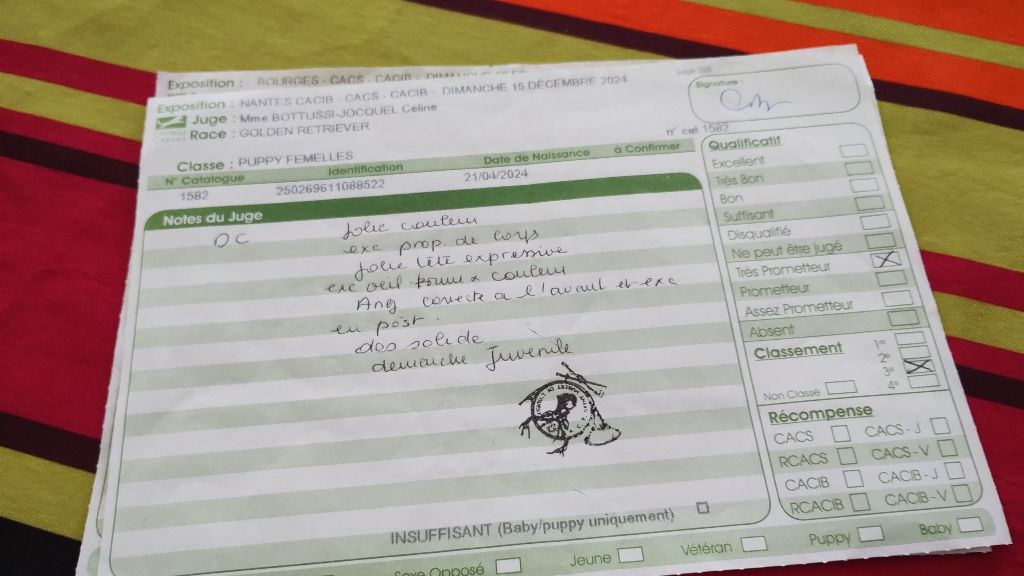 Exposition : BOURGES - CACS - CACIB - DIMANCHE
Exposition : NANTES CACIB - CACS - CACIB - DIMANCHE 15 DÉCEMBRE 2024
Signature :
Juge : Mme BOTTUSSI-JOCQUEL Céline
Race : GOLDEN RETRIEVER
n° cat 1582
Classe : PUPPY FEMELLES
N° Catalogue Identification Date de Naissance à Confirmer
1582 250269611088522 21/04/2024
Notes du Juge
OC
Jolie couleur
exc prop. de corps
Jolie tête expressive
exc oeil forme x couleur
Ang correcte a l'avant et exc
en post.
dos solide
demarche Juvenile
INSUFFISANT (Baby/puppy uniquement)
Qualificatif
Excellent
Très Bon
Bon
Suffisant
Disqualifié
Ne peut être jugé
Très Prometteur
Prometteur
Assez Prometteur
Absent
Classement
1°
2°
3°
4°
Non Classé
Récompense
CACS CACS - J
RCACS CACS - V
CACIB CACIB - J
RCACIB CACIB - V
Sexe Opposé Jeune Vétéran Puppy Baby